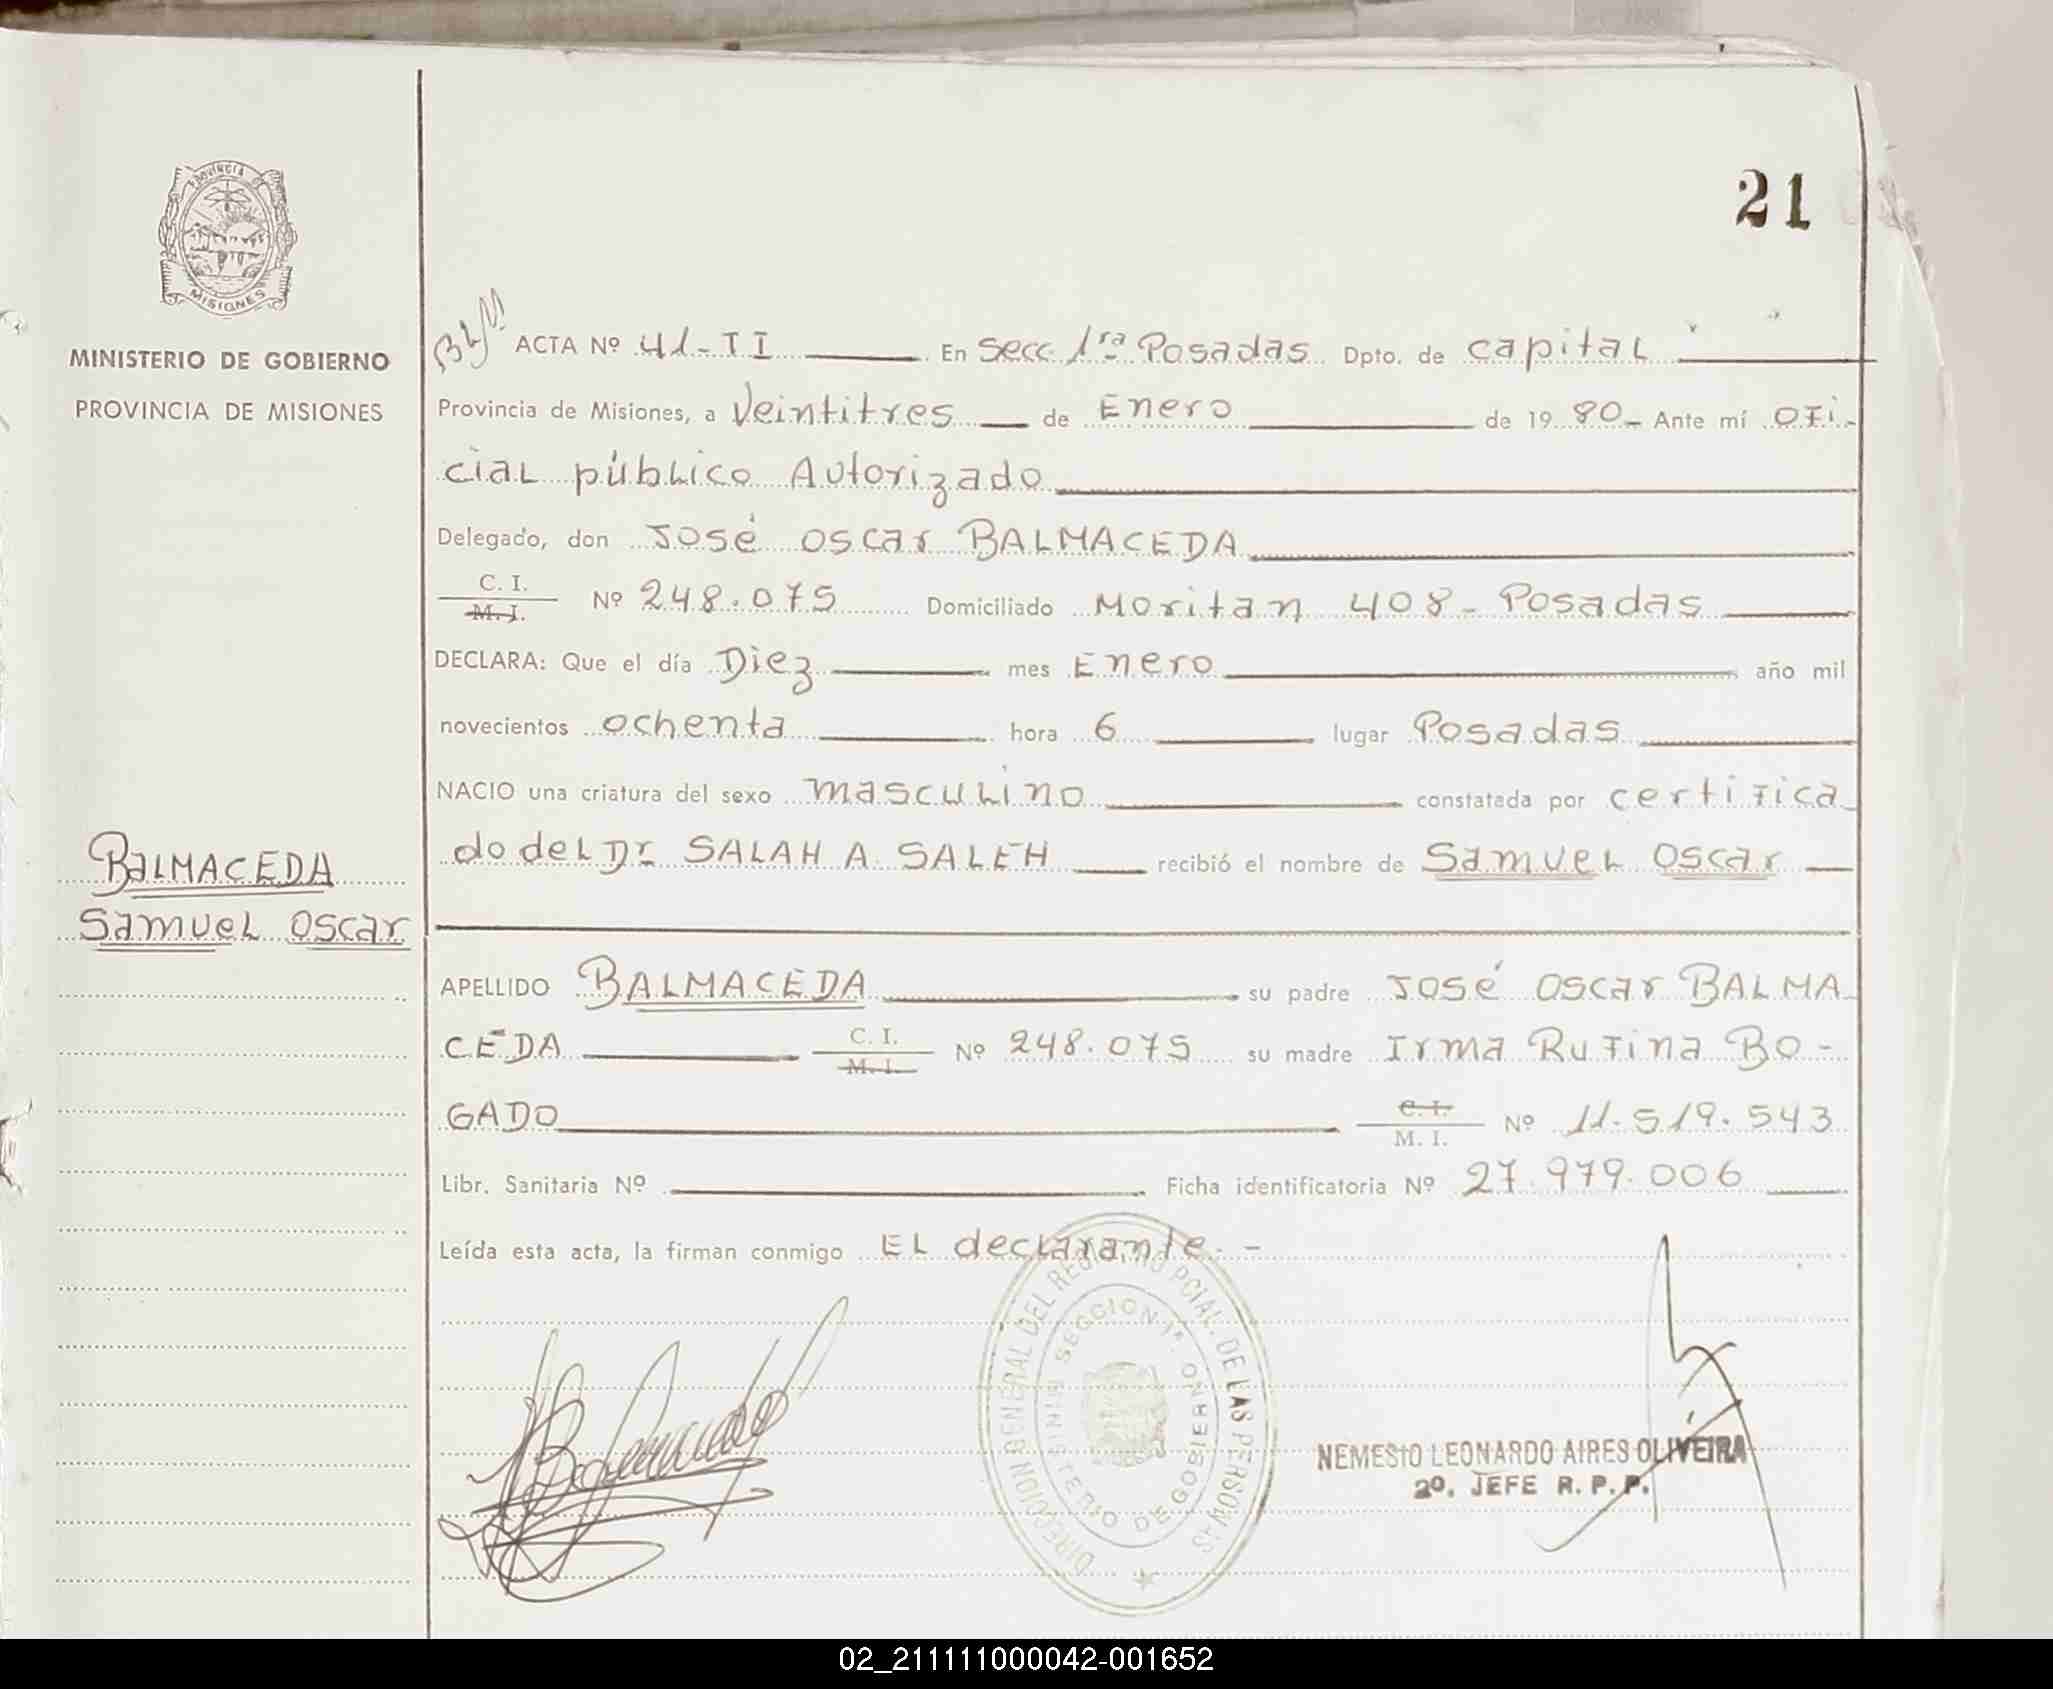 PROVINCIA DE
MISIONES
MINISTERIO DE GOBIERNO
PROVINCIA DE MISIONES
BALMACEDA
Samuel Oscar
21
ACTA Nº 41-TI En Secc. 1ra Posadas Dpto. de capital
Provincia de Misiones, a Veintitres de Enero de 19 80 - Ante mí ofi-
cial público Autorizado
Delegado, don José Oscar BALMACEDA
C. I.
M. I. Nº 248.075 Domiciliado Moritan 408 - Posadas
DECLARA: Que el día Diez mes Enero año mil
novecientos ochenta hora 6 lugar Posadas
NACIO una criatura del sexo masculino constatada por certifica
do del Dr SALAH A. SALEH recibió el nombre de Samuel Oscar
APELLIDO BALMACEDA su padre José Oscar BALMA
CEDA C. I.
M. I. Nº 248.075 su madre Irma Rufina BO-
GADO C. I.
M. I. Nº 11.519.543
Libr. Sanitaria Nº Ficha identificatoria Nº 27.979.006
Leída esta acta, la firman conmigo El declarante. -
DIRECCION GENERAL DEL REGISTRO PCIAL. DE LAS PERSONAS
SECCION 1ª.
MINISTERIO DE GOBIERNO
NEMESIO LEONARDO AIRES OLIVEIRA
2º. JEFE R. P. P.
02_211111000042-001652